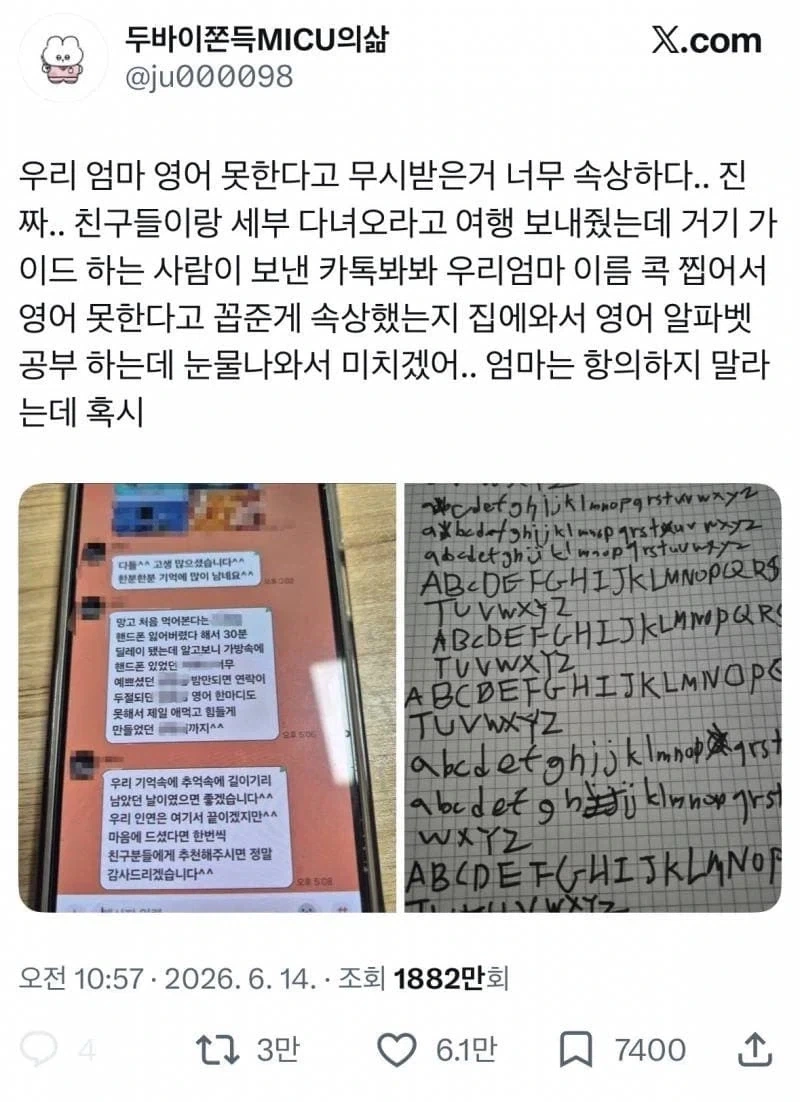 두바이쫀득MICU의삶
X.com
@ju000098
우리 엄마 영어 못한다고 무시받은거 너무 속상하다.. 진
짜.. 친구들이랑 세부 다녀오라고 여행 보내줬는데 거기 가
이드 하는 사람이 보낸 카톡봐봐 우리엄마 이름 콕 찝어서
영어 못한다고 꼽준게 속상했는지 집에와서 영어 알파벳
공부 하는데 눈물나와서 미치겠어.. 엄마는 항의하지 말라
는데 혹시
다들^^ 고생 많으셨습니다^^
한분한분 기억에 많이 남네요^^
망고 처음 먹어본다는
핸드폰 잃어버렸다 해서 30분
딜레이 됐는데 알고보니 가방속에
핸드폰 있었던
예쁘셨던 방안되면 연락이
두절되던 영어 한마디도
못해서 제일 애먹고 힘들게
만들었던 까지^^
오후 5:06
우리 기억속에 추억속에 길이기리
남았던 날이였으면 좋겠습니다^^
우리 인연은 여기서 끝이겠지만^^
마음에 드셨다면 한번씩
친구분들에게 추천해주시면 정말
감사드리겠습니다^^
오후 5:08
abcdefghijklmnopqrstuvwxyz
abcdefghijklmnopqrstuvwxyz
abcdefghijklmnopqrstuvwxyz
ABCDEFGHIJKLMNOPQRS
TUVWXYZ
ABCDEFGHIJKLMNOPQRS
TUVWXYZ
ABCDEFGHIJKLMNOPQ
TUVWXYZ
abcdefghijklmnop qrst
abcdefgh ijklmnopqrst
WXYZ
ABCDEFGHIJKLMNOP
오전 10:57 · 2026. 6. 14. · 조회 1882만회
4 3만 6.1만 7400